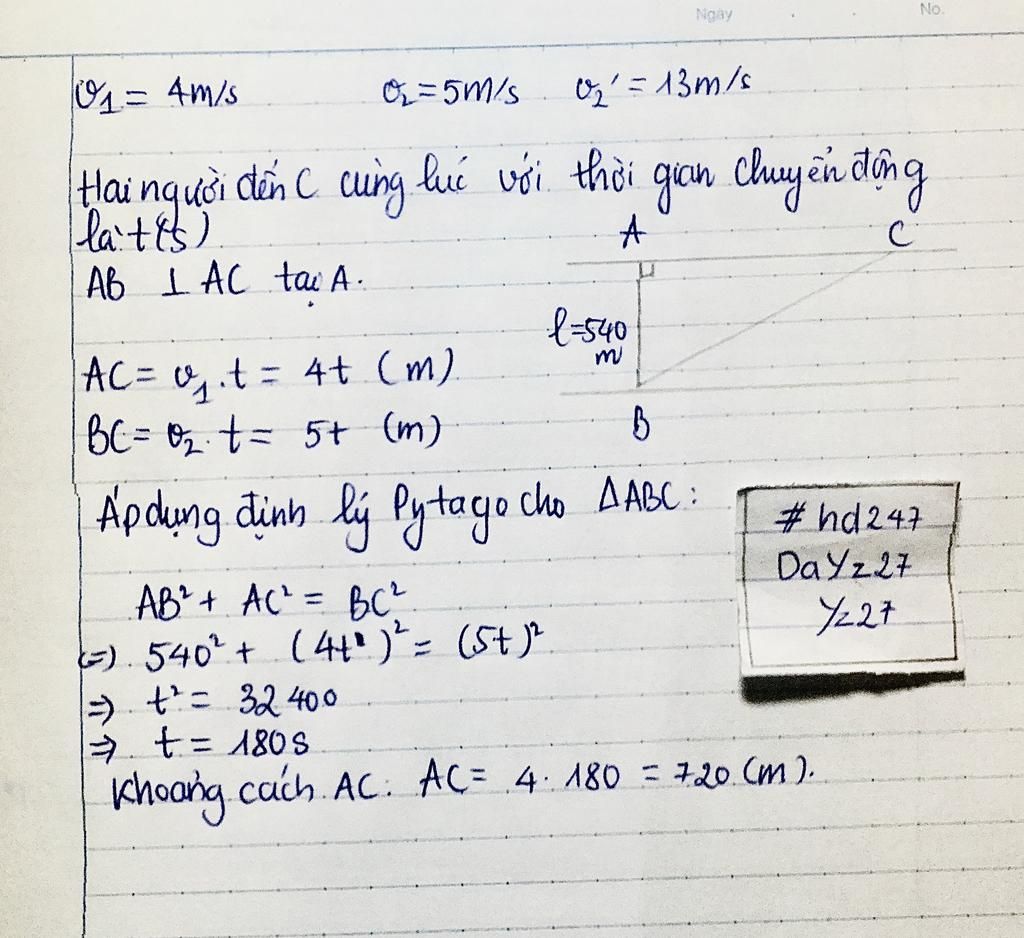 Ngày No.
v₁ = 4m/s v₂ = 5m/s v₂' = 13m/s
Hai người đến C cùng lúc với thời gian chuyển động
là t(s)
AB ⊥ AC tại A.
A C
l=540
m
B
AC = v₁.t = 4t (m)
BC = v₂.t = 5t (m)
Áp dụng định lý Pytago cho ΔABC:
AB² + AC² = BC²
(=) 540² + (4t)² = (5t)²
⇒ t² = 32 400
⇒ t = 180s
Khoảng cách AC: AC = 4. 180 = 720 (m).
# hd247
DaYz27
Yz27